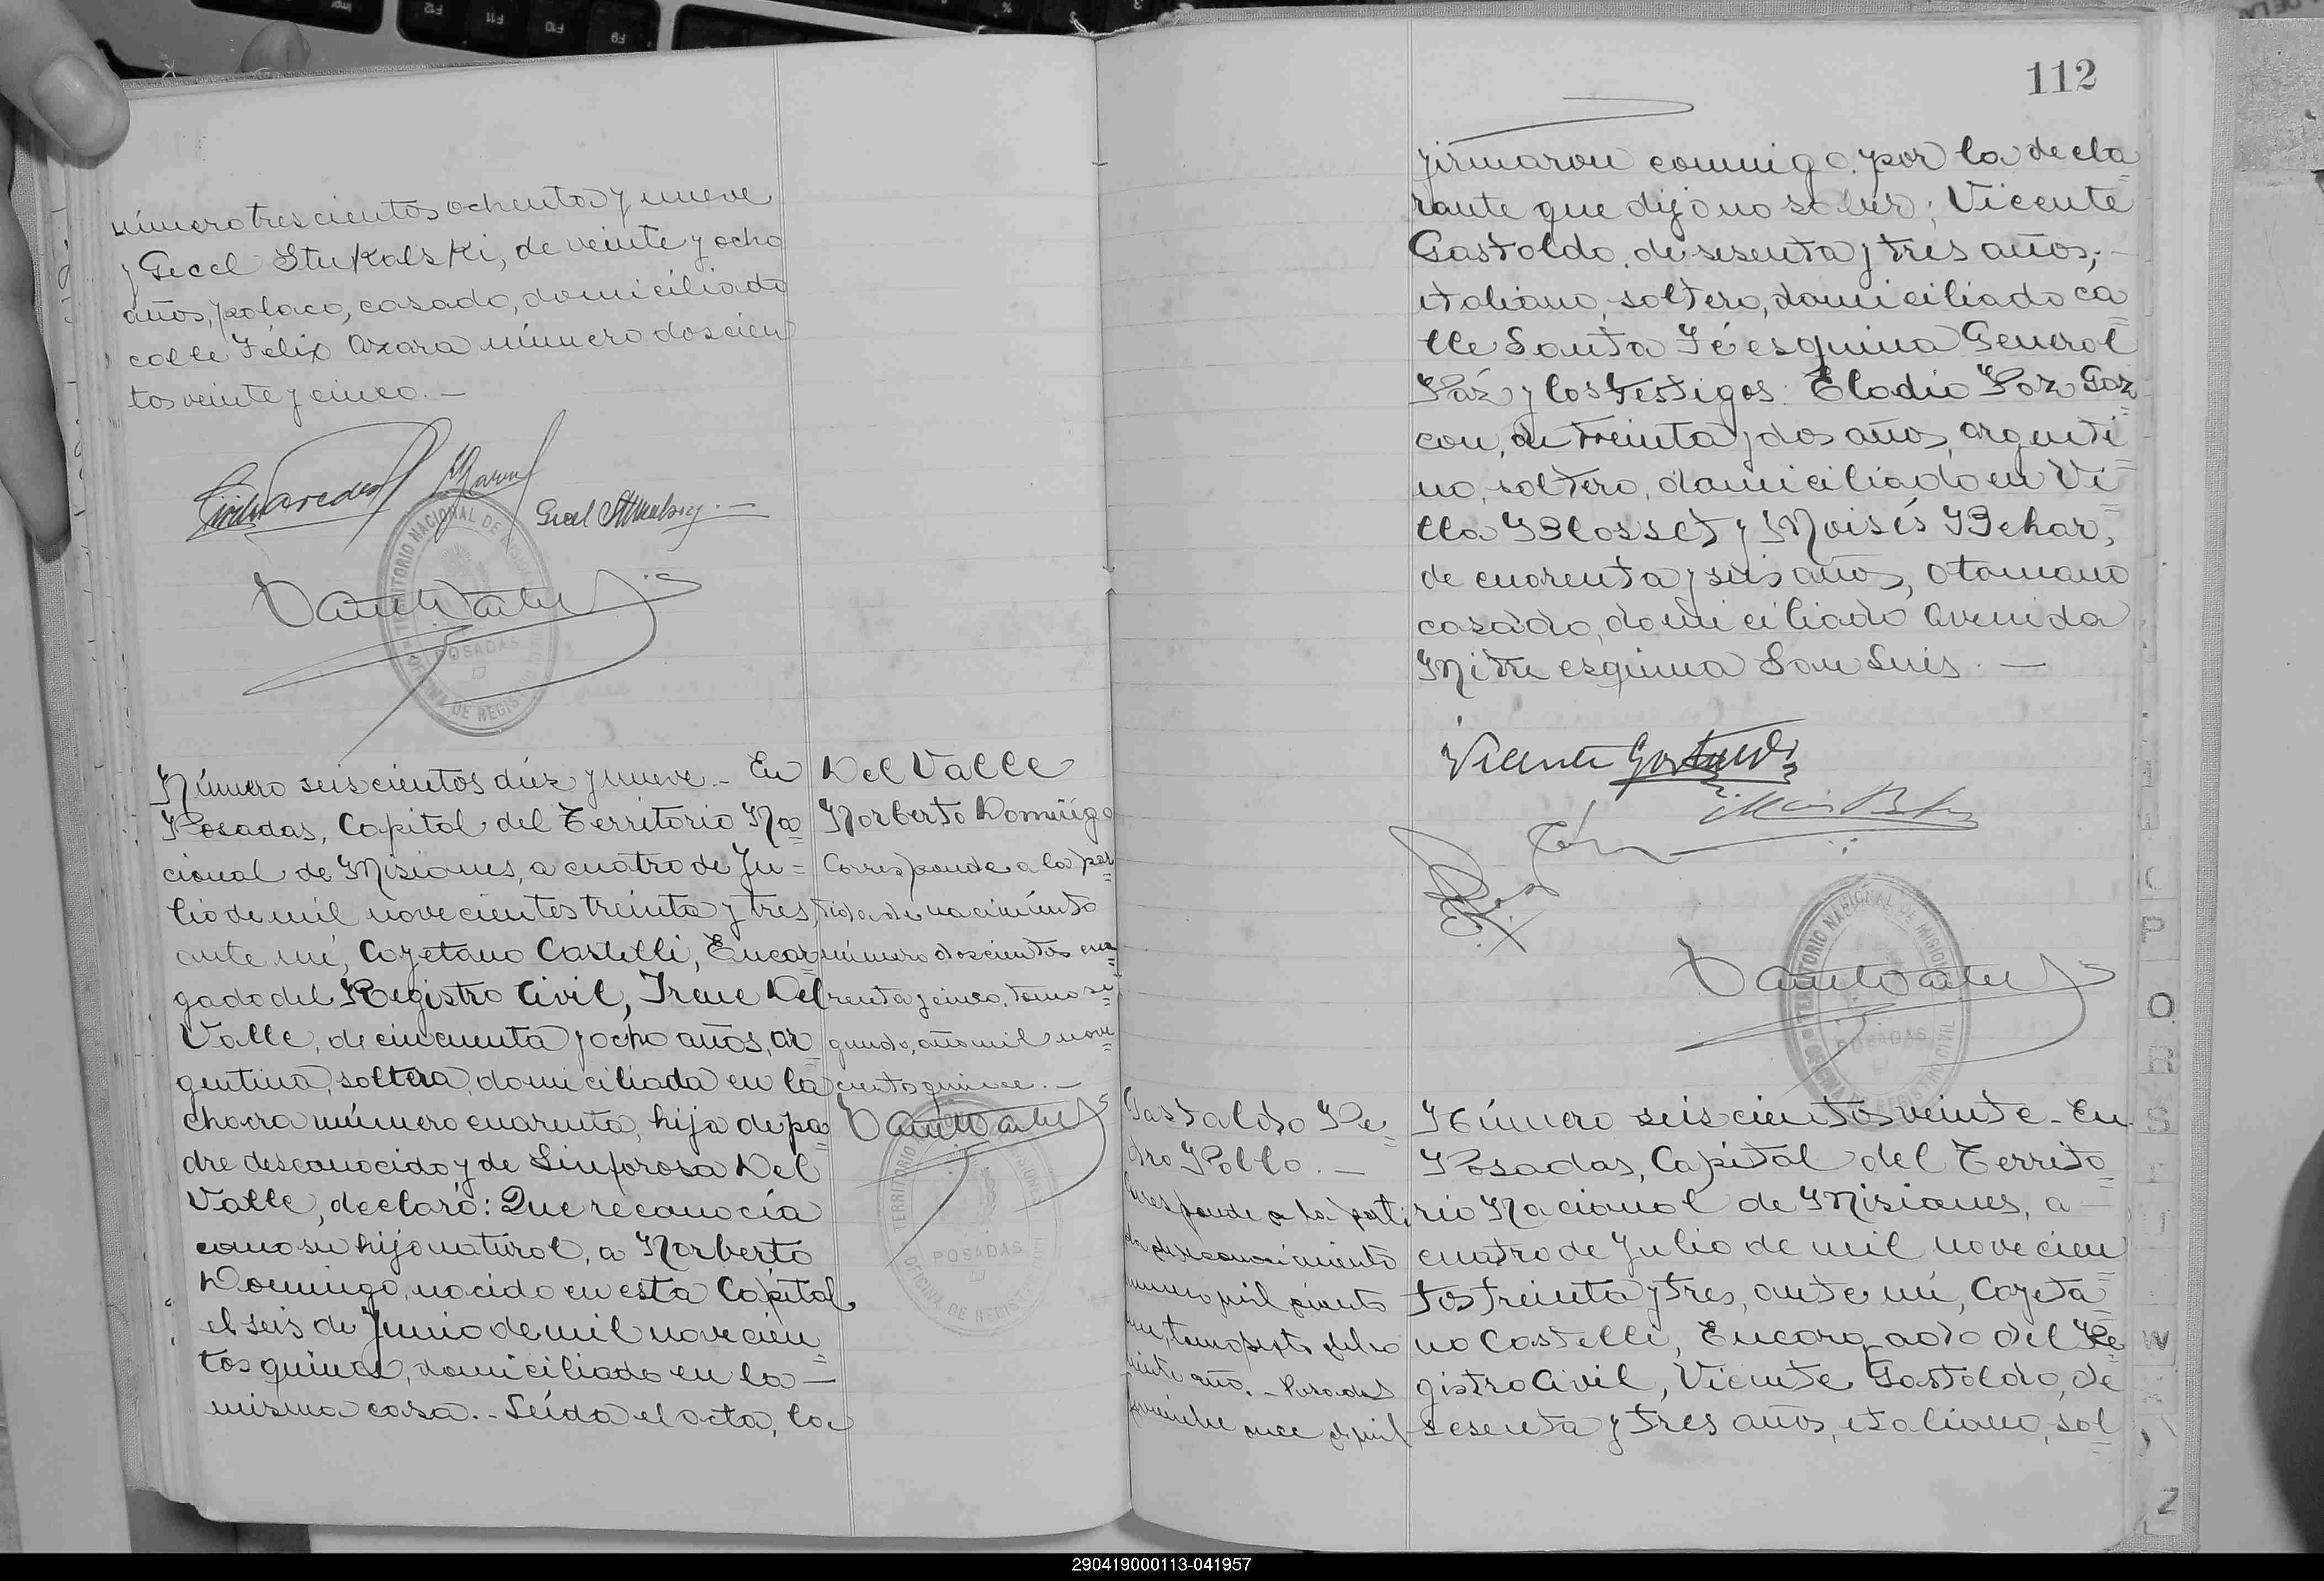 número trescientos ochenta y nueve
y Gecel Stukalski, de veinte y ocho
años, polaco, casado, domiciliado
calle Félix Azara número doscien
tos veinte y cinco. —
TERRITORIO NACIONAL DE MISIONES
POSADAS
OFICINA DE REGISTRO CIVIL
Número seiscientos diez y nueve.- En
Posadas, Capital del Territorio Na=
cional de Misiones, a cuatro de Ju=
lio de mil novecientos treinta y tres,
ante mí, Cayetano Castelli, Encar=
gado del Registro Civil, Irene Del
Valle, de cincuenta y ocho años, ar=
gentina, soltera, domiciliada en la
chacra número cuarenta, hija de pa=
dre desconocido y de Sinforosa Del
Valle, declaró: Que reconocía
como su hijo natural, a Norberto
Domingo, nacido en esta Capital,
el seis de Junio de mil novecien=
tos quince, domiciliado en la —
misma casa.- Leída el acta, la
Del Valle
Norberto Domingo
Corresponde a la par=
tida de nacimiento
número doscientos cua=
renta y cinco, tomo se=
gundo, año mil nove=
cientos quince. —
TERRITORIO NACIONAL DE MISIONES
POSADAS
OFICINA DE REGISTRO CIVIL
112
firmaron conmigo, por la decla=
rante que dijo no saber; Vicente
Gastoldo, de sesenta y tres años, —
italiano, soltero, domiciliado ca=
lle Santa Fé esquina General
Paz y los testigos: Eladio Paz Gar=
con, de treinta y dos años, argenti=
no, soltero, domiciliado en Vi=
lla Blosset y Moisés Behar,
de cuarenta y seis años, otomano
casado, domiciliado Avenida
Mitre esquina San Luis. —
Vicente Gastoldo
TERRITORIO NACIONAL DE MISIONES
POSADAS
OFICINA DE REGISTRO CIVIL
Gastoldo Pe=
dro Pablo. —
Corresponde a la parti
da de reconocimiento
número mil ciento
año. -
once de mil
Número seiscientos veinte.- En
Posadas, Capital del Territo=
rio Nacional de Misiones, a —
cuatro de Julio de mil novecien=
tos treinta y tres, ante mí, Cayeta=
no Castelli, Encargado del Re=
gistro Civil, Vicente Gastoldo, de
sesenta y tres años, italiano, sol=
P
Q
R
S
W
Z
290419000113-041957